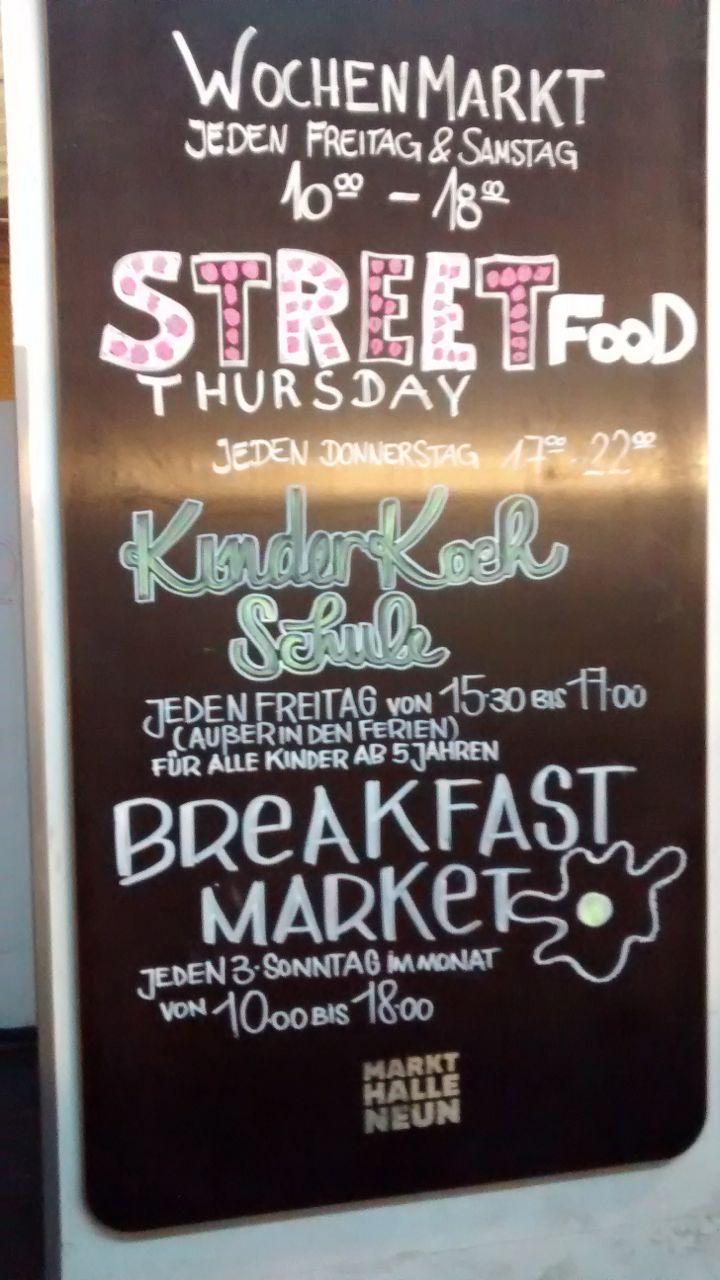 WOCHENMARKT
JEDEN FREITAG & SAMSTAG
10⁰⁰ – 18⁰⁰
STREET FOOD
THURSDAY
JEDEN DONNERSTAG 17⁰⁰ - 22⁰⁰
KinderKoch
Schule
JEDEN FREITAG VON 15.30 BIS 17.00
(AUßER IN DEN FERIEN)
FÜR ALLE KINDER AB 5 JAHREN
BREAKFAST
MARKET
JEDEN 3. SONNTAG IM MONAT
VON 10.00 BIS 18.00
MARKT
HALLE
NEUN